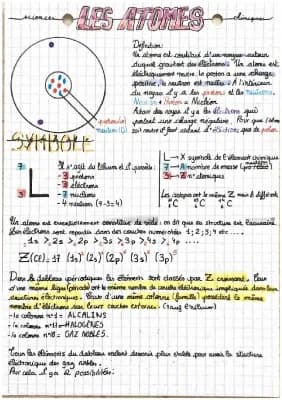 Sciences
chimiques
LES ATOMES
Définition:
Un atome est constitué d'un noyau autour
duquel gravitent des électrons. Un atome est
électriquement neutre, le proton a une charge
positive, le neutron est neutre. A l'intérieur
du noyau il y a les protons et les neutrons.
Neutron + Proton = Nucléon
Autour du noyau il y a les électrons qui
portent une charge négative. Pour que l'atome
soit neutre il faut autant d'électrons que de protons.
proton (+)
neutron (0)
SYMBOLE
7
3
L
Il s'agit du lithium et il possède:
- 3 protons
- 3 électrons
- 7 nucléons
- 4 neutrons (7-3=4)
X symbole de l'élément chimique
A nombre de masse
Z n° atomique
Les isotopes ont le même Z mais A différent
C C C
Un atome est essentiellement constitué de vide: on dit que sa structure est lacunaire.
Les électrons sont répartis dans des couches numérotées 1; 2; 3; ....
1s > 2s > 2p > 3s > 3p > 4s > 4p ....
Z(Cl)=17 (1s)² (2s)² (2p)⁶ (3s)² (3p)⁵
Dans le tableau périodique les éléments sont classés par Z croissant. Pour
une même ligne (période) ont le même nombre de couches électroniques impliquées dans leur
structure électronique. Pour d'une même colonne (famille) possèdent le même
nombre d'électrons sur leur couche externe.
- la colonne n°1 = ALCALINS
- la colonne n°17 = HALOGÈNES
- la colonne n°18 = GAZ NOBLES.
Tous les éléments du tableau veulent devenir plus stables pour avoir la structure
électronique des gaz nobles.
Par cela il y a 2 possibilités: